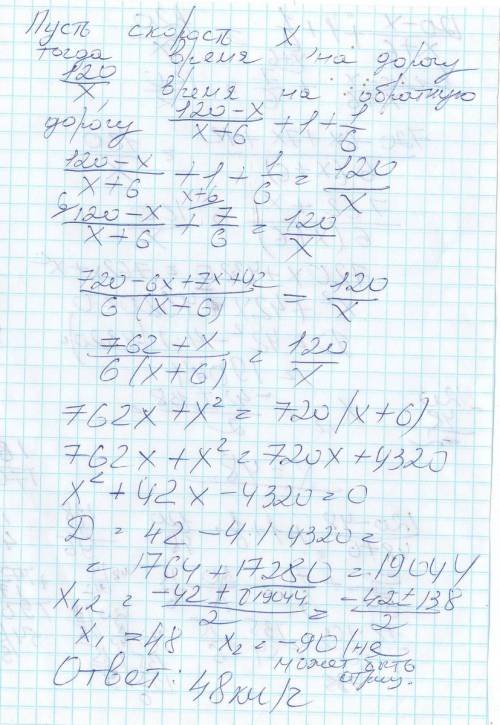 Пусть скорость x
тогда время на дорогу
120/x время на обратную
дорогу (120-x)/(x+6) + 1 + 1/6
(120-x)/(x+6) + 1 + 1/6 = 120/x
6 (120-x)/(x+6) + x+6 7/6 = 120/x
(720-6x+7x+42)/(6(x+6)) = 120/x
(762+x)/(6(x+6)) = 120/x
762x+x² = 720(x+6)
762x+x² = 720x+4320
x²+42x-4320=0
D = 42-4·1·4320=
= 1764+17280=19044
x₁,₂ = (-42±√19044)/2 = (-42±138)/2
x₁=48 x₂=-90 (не
может быть
отриц.
Ответ: 48км/ч